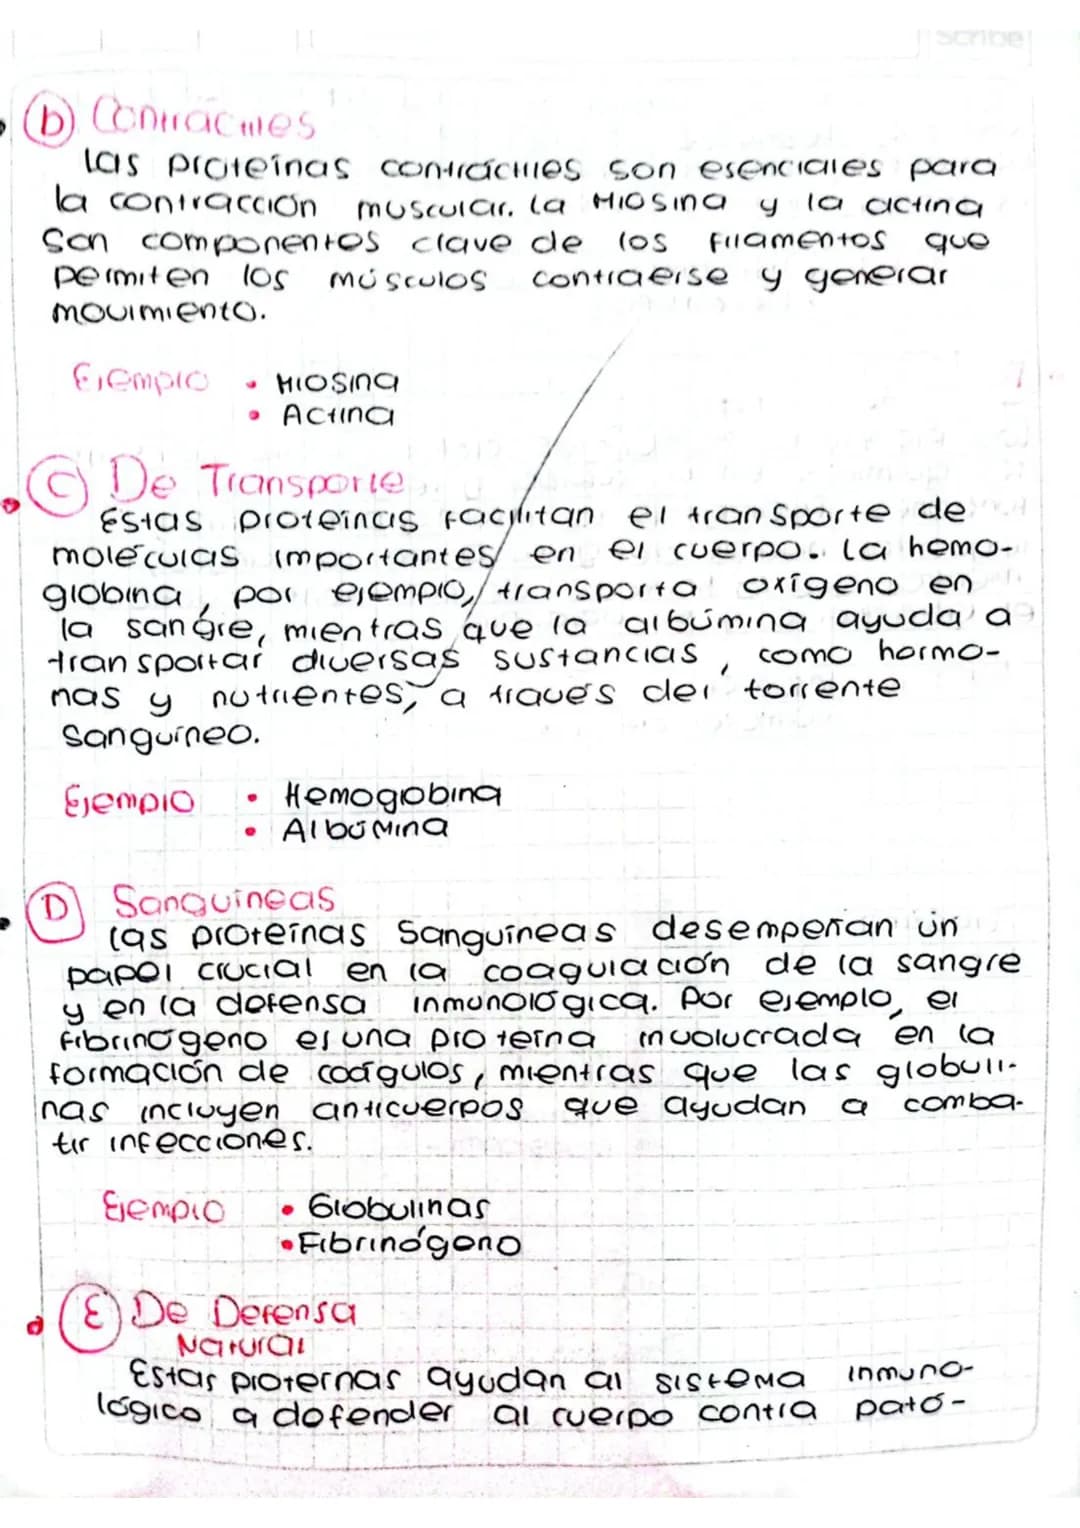 Scribe
b) Contráctiles
las proteínas contráctiles son esenciales para
la contracción muscular. la Miosina y la actina
Son componentes clave de los filamentos que
permiten los músculos contraerse y generar
movimiento.
Ejemplo • Miosina
• Actina
C) De Transporte
Estas proteínas facilitan el transporte de
moléculas importantes en el cuerpo. La hemo-
globina, por ejemplo, transporta oxígeno en
la sangre, mientras que la albúmina ayuda a
transportar diversas sustancias, como hormo-
nas y nutrientes, a través del torrente
Sanguíneo.
Ejemplo • Hemoglobina
• Albúmina
D) Sanguíneas
las proteínas Sanguíneas desempeñan un
papel crucial en la coagulación de la sangre
y en la defensa inmunológica. Por ejemplo, el
fibrinógeno es una proteína involucrada en la
formación de coágulos, mientras que las globuli-
nas incluyen anticuerpos que ayudan a comba-
tir infecciones.
Ejemplo • Globulinas
• Fibrinógeno
E) De Defensa
Natural
Estas proternas ayudan al sistema inmuno-
lógico a defender al cuerpo contra pató-